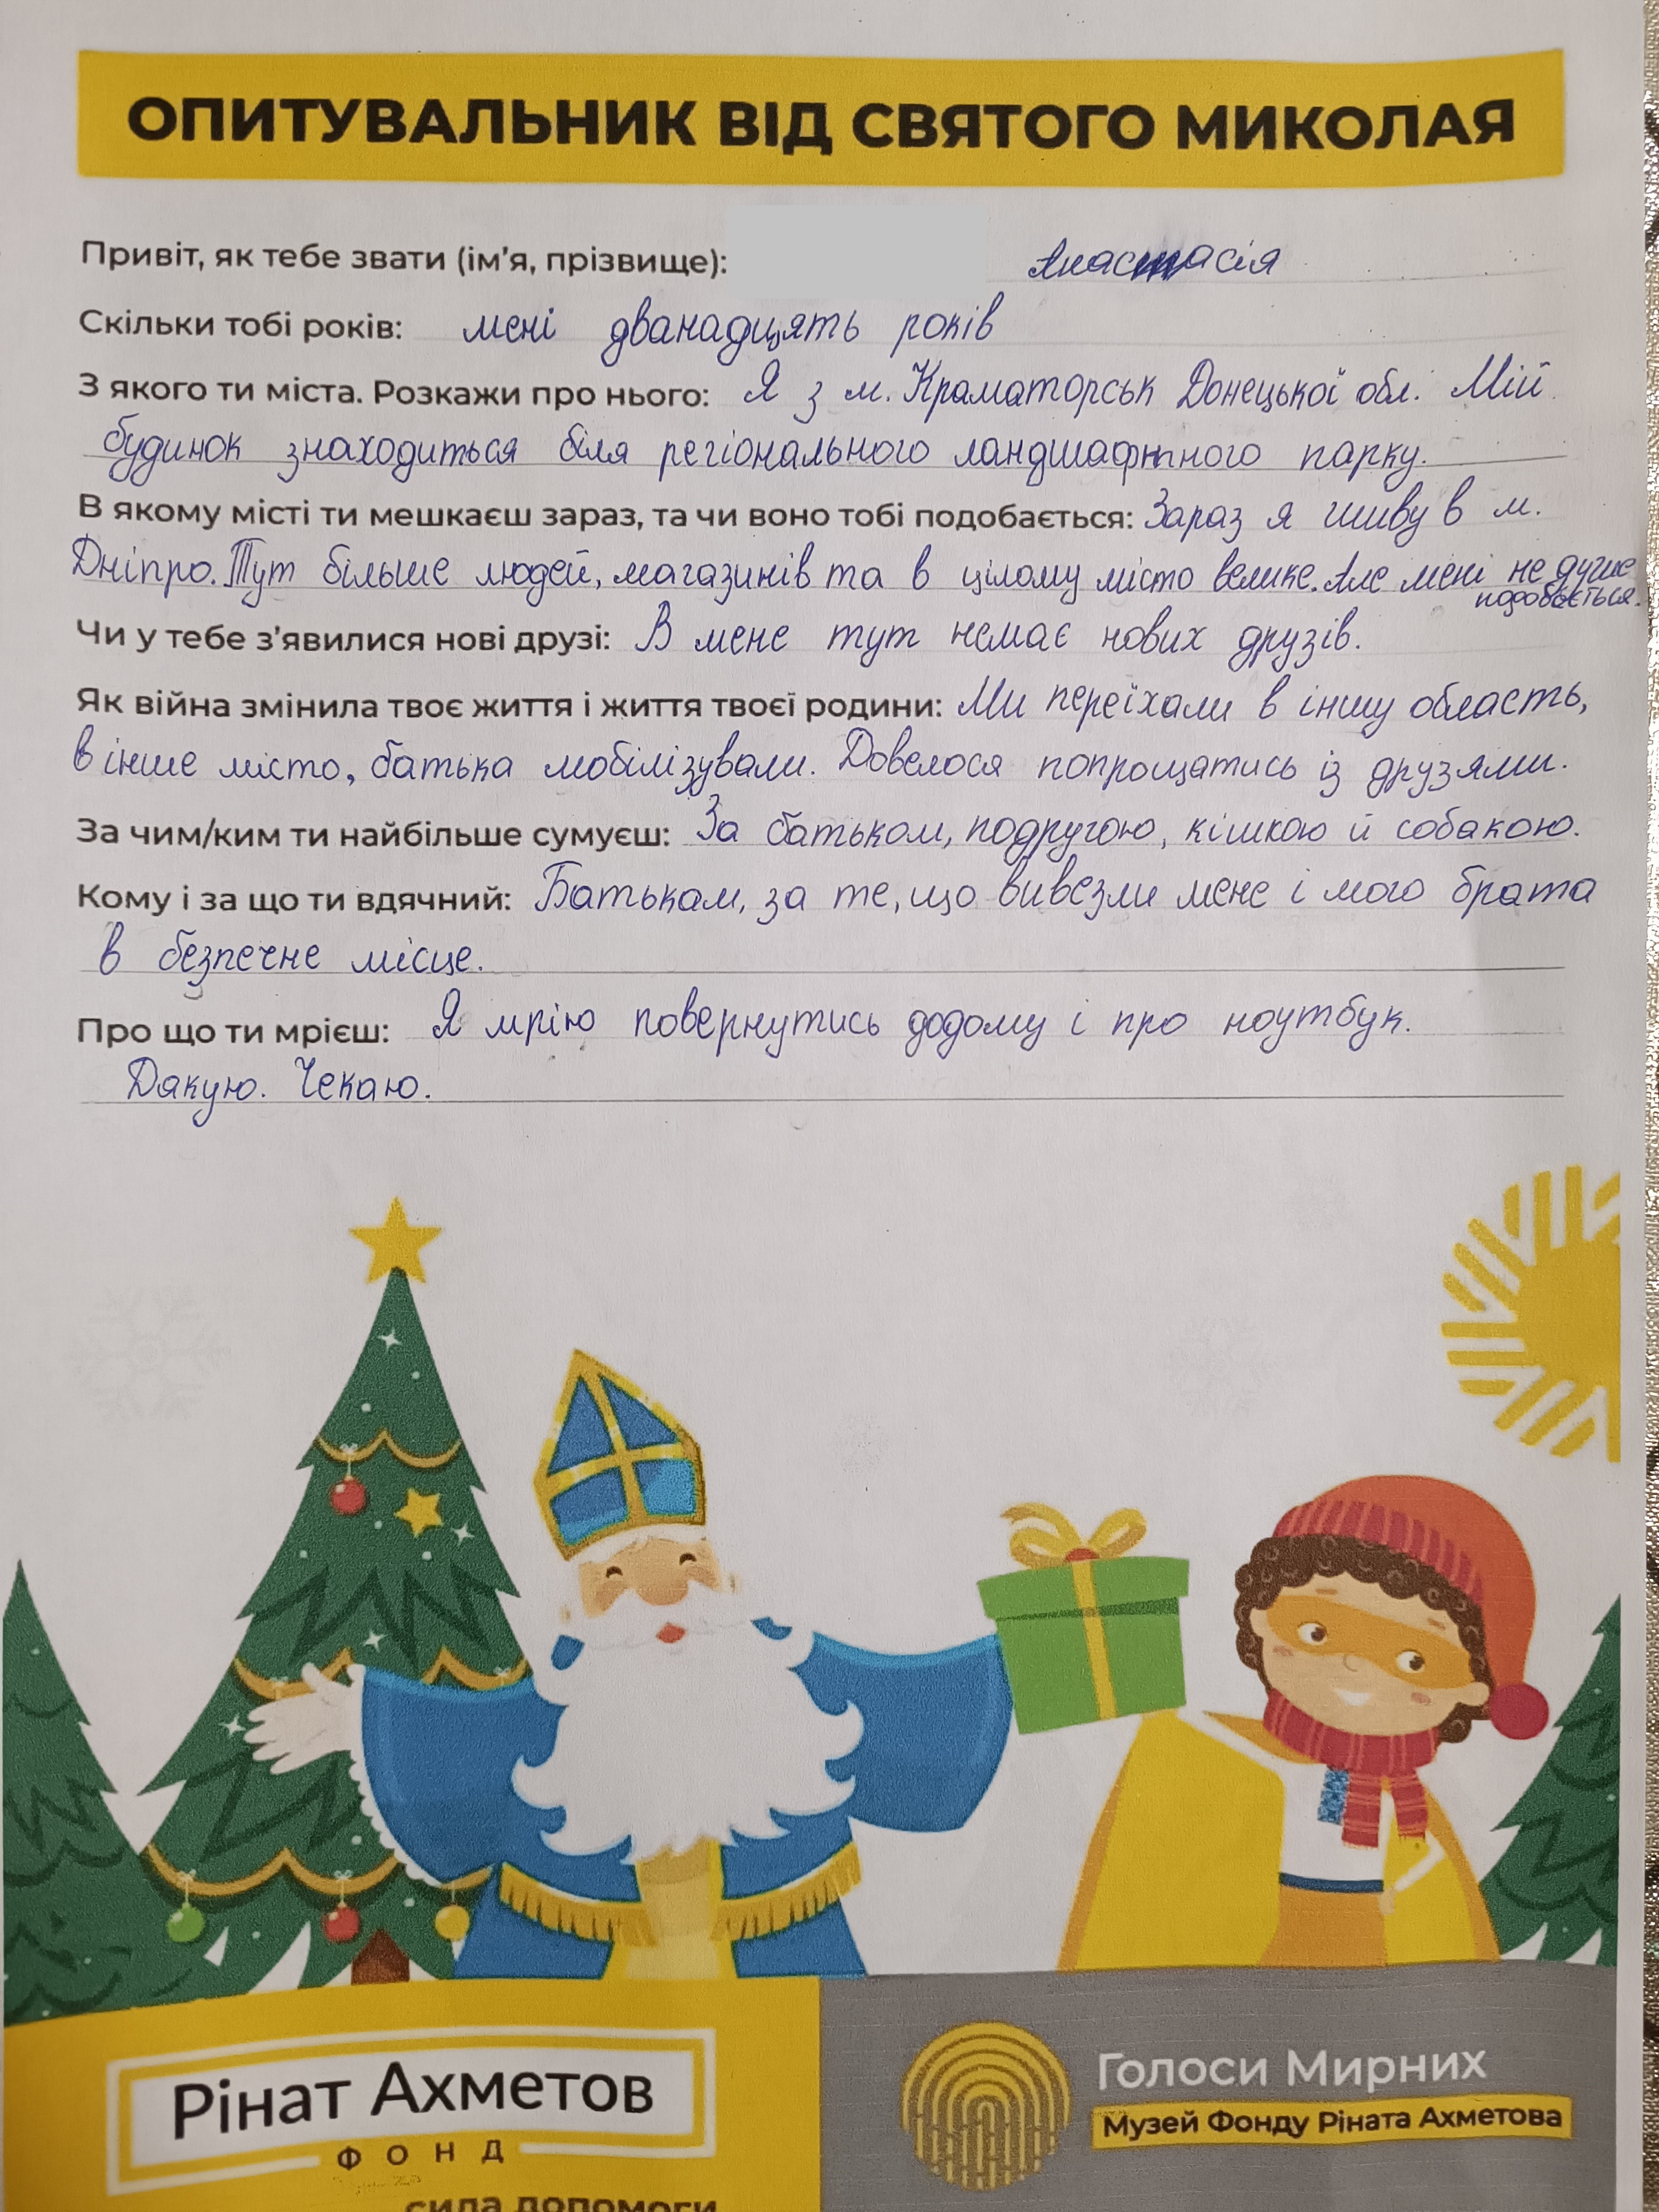 ОПИТУВАЛЬНИК ВІД СВЯТОГО МИКОЛАЯ
Привіт, як тебе звати (ім'я, прізвище): Анастасія
Скільки тобі років: мені дванадцять років
З якого ти міста. Розкажи про нього: Я з м. Краматорськ Донецької обл. Мій
будинок знаходиться біля регіонального ландшафтного парку.
В якому місті ти мешкаєш зараз, та чи воно тобі подобається: Зараз я живу в м.
Дніпро. Тут більше людей, магазинів та в цілому місто велике. Але мені не дуже
подобається.
Чи у тебе з'явилися нові друзі: В мене тут немає нових друзів.
Як війна змінила твоє життя і життя твоєї родини: Ми переїхали в іншу область,
в інше місто, батька мобілізували. Довелося попрощатись із друзями.
За чим/ким ти найбільше сумуєш: За батьком, подругою, кішкою й собакою.
Кому і за що ти вдячний: Батькам, за те, що вивезли мене і мого брата
в безпечне місце.
Про що ти мрієш: Я мрію повернутись додому і про ноутбук.
Дякую. Чекаю.
Рінат Ахметов
ФОНД
сила допомоги
Голоси Мирних
Музей Фонду Ріната Ахметова